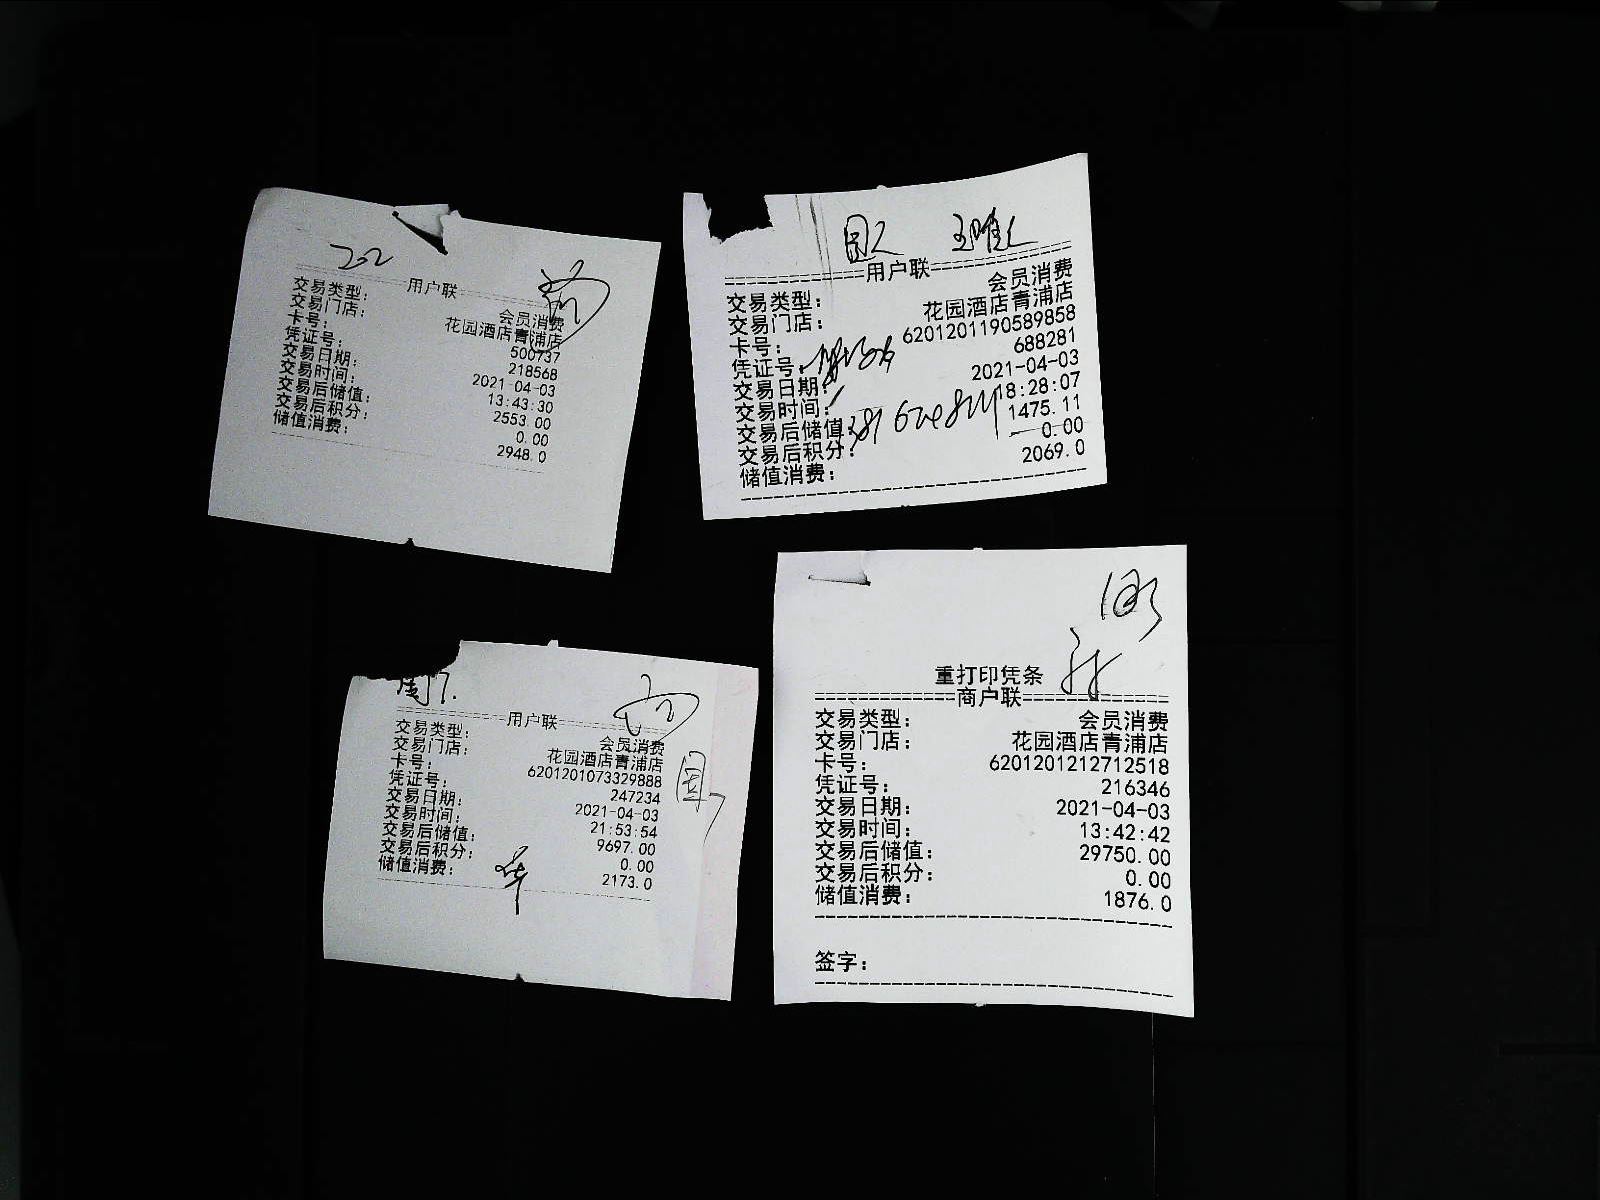 222
用户联
交易类型：
会员消费
交易门店：
花园酒店青浦店
卡号：
500737
凭证号：
218568
交易日期：
2021-04-03
交易时间：
13:43:30
交易后储值：
2553.00
交易后积分：
0.00
储值消费：
2948.0
用户联
交易类型：
会员消费
交易门店：
花园酒店青浦店
卡号：
6201201190589858
凭证号：
688281
交易日期：
2021-04-03
交易时间：
18:28:07
交易后储值：
1475.11
交易后积分：
0.00
储值消费：
2069.0
用户联
交易类型：
会员消费
交易门店：
花园酒店青浦店
卡号：
6201201073329888
凭证号：
247234
交易日期：
2021-04-03
交易时间：
21:53:54
交易后储值：
9697.00
交易后积分：
0.00
储值消费：
2173.0
重打印凭条
商户联
交易类型：
会员消费
交易门店：
花园酒店青浦店
卡号：
6201201212712518
凭证号：
216346
交易日期：
2021-04-03
交易时间：
13:42:42
交易后储值：
29750.00
交易后积分：
0.00
储值消费：
1876.0
签字：